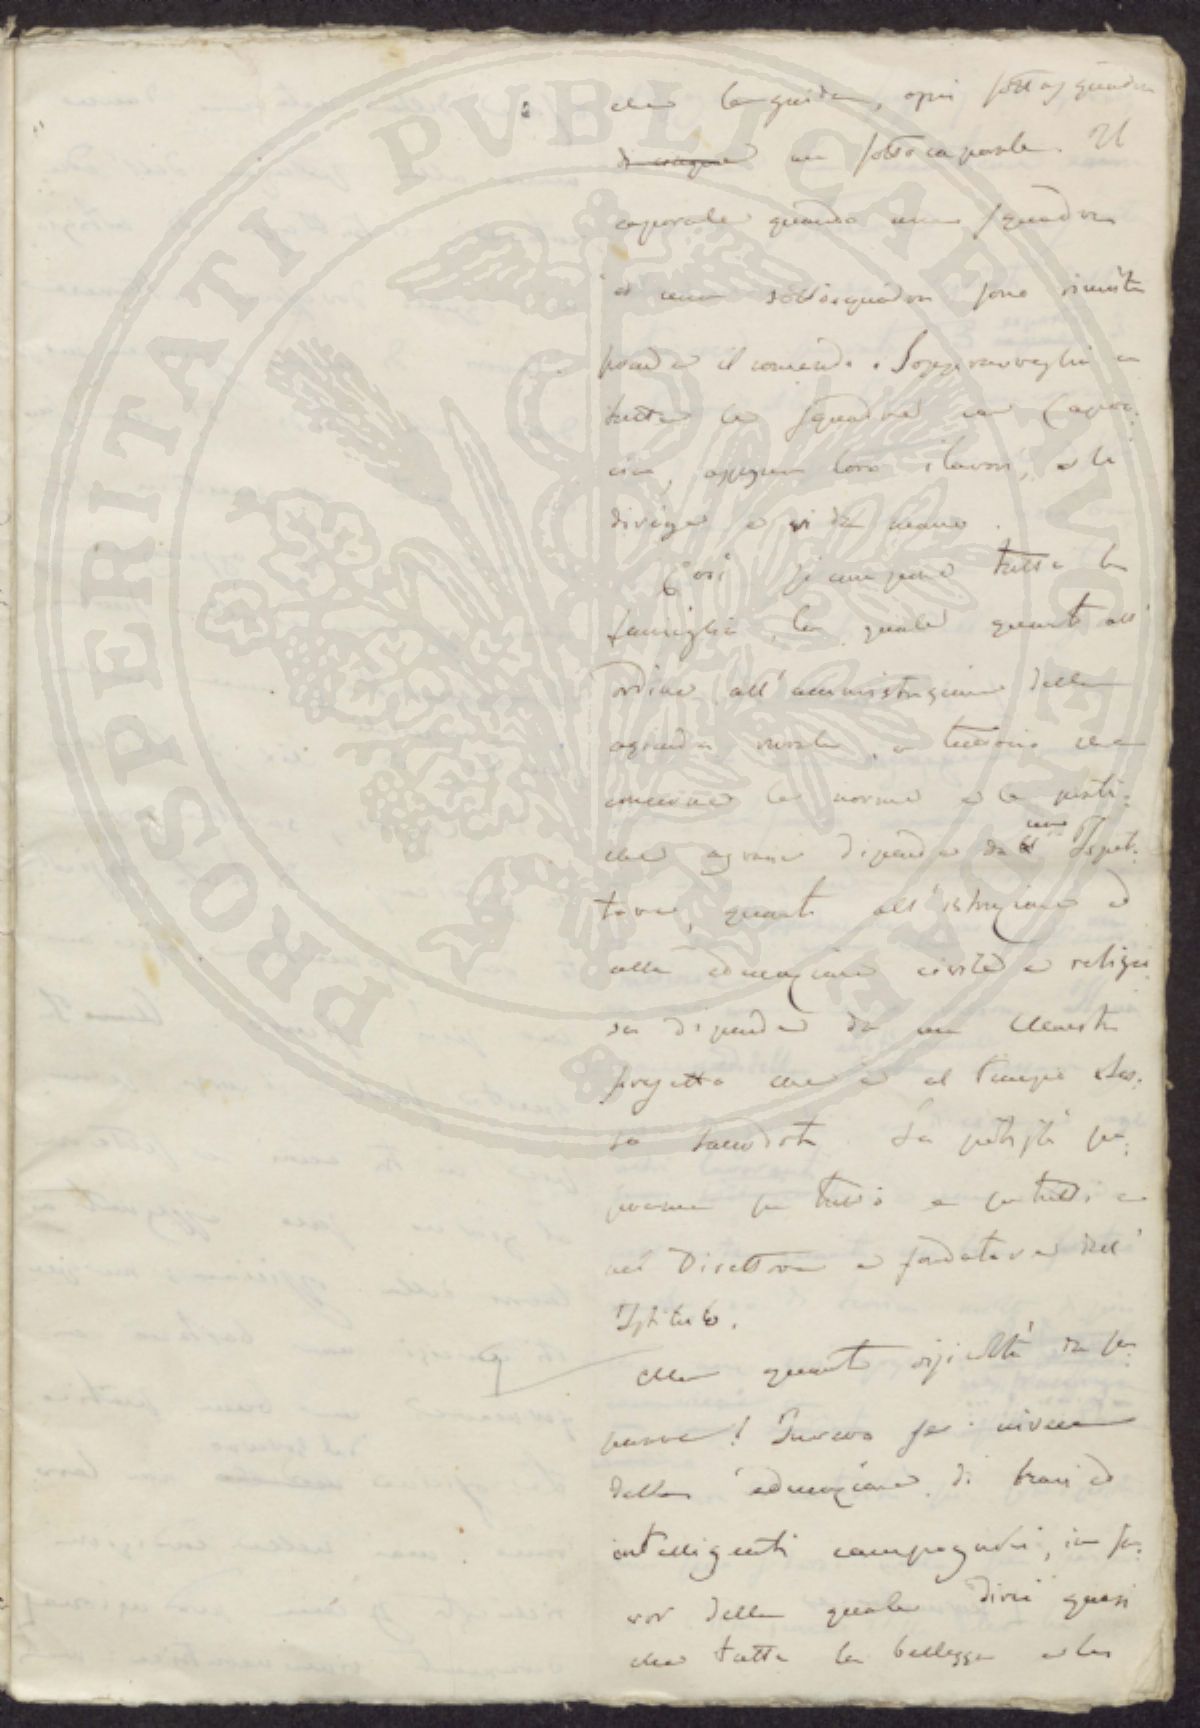 PROSPERITATI PUBLICAE AUGENDAE
che la guida, ogni sottosquadra
di cinque un sottocaporale. Il
caporale quando una squadra
ed una sottosquadra sono riunite
prende il comando. Soppravveglia a
tutte le squadre un Capoc-
cia, assegna loro i lavori, e le
dirige e vi dà mano.
Così si compone tutta la
famiglia, la quale quanto all'
ordine, all'amministrazione della
azienda rurale, a tuttociò che
concerne le norme e le prati-
che agrarie dipende da uno Ispet-
tore, quanto all'istruzione ed
alla educazione civile e religio
sa dipende da un Maestro
che è al tempo stes-
so sacerdote. La
per tutto e per tutti è
nel Direttore e fondatore dell'
Istituto.
Ma quante difficoltà da su-
perare! Invero se viva
della educazione di bravi ed
intelligenti campagnoli, in fa-
vor della quale direi quasi
che tutta la bellezza e la